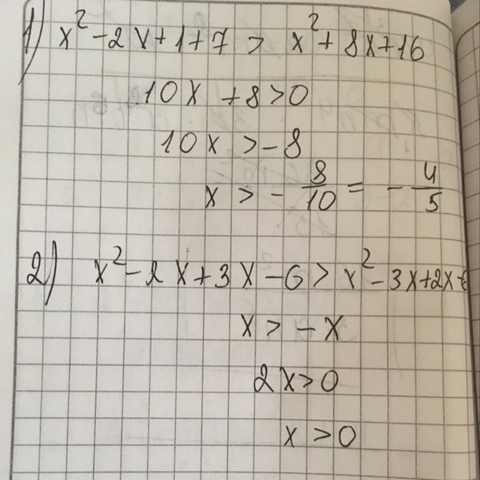 1) x² - 2x + 1 + 7 > x² + 8x + 16
10x + 8 > 0
10x > -8
x > - 8/10 = - 4/5
2) x² - 2x + 3x - 6 > x² - 3x + 2x - 6
x > - x
2x > 0
x > 0